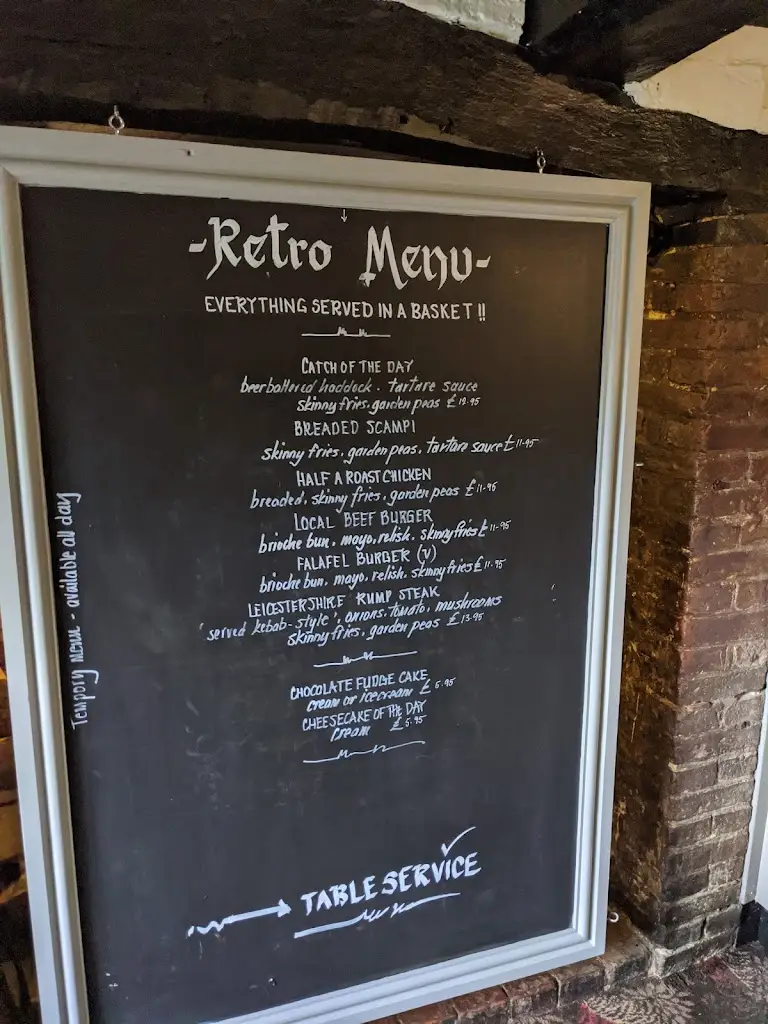 -Retro Menu-
EVERYTHING SERVED IN A BASKET !!
CATCH OF THE DAY
beerbattered haddock . tartare sauce
skinny fries, garden peas £12.95
BREADED SCAMPI
skinny fries, garden peas, tartare sauce £11.95
HALF A ROAST CHICKEN
breaded, skinny fries, garden peas £11.95
LOCAL BEEF BURGER
brioche bun, mayo, relish, skinny fries £11.95
FALAFEL BURGER (V)
brioche bun, mayo, relish, skinny fries £11.95
LEICESTERSHIRE RUMP STEAK
'served kebab-style', onions, tomato, mushrooms
skinny fries, garden peas £13.95
CHOCOLATE FUDGE CAKE
cream or icecream £5.95
CHEESECAKE OF THE DAY
cream £5.95
TABLE SERVICE
Tempory menu - available all day